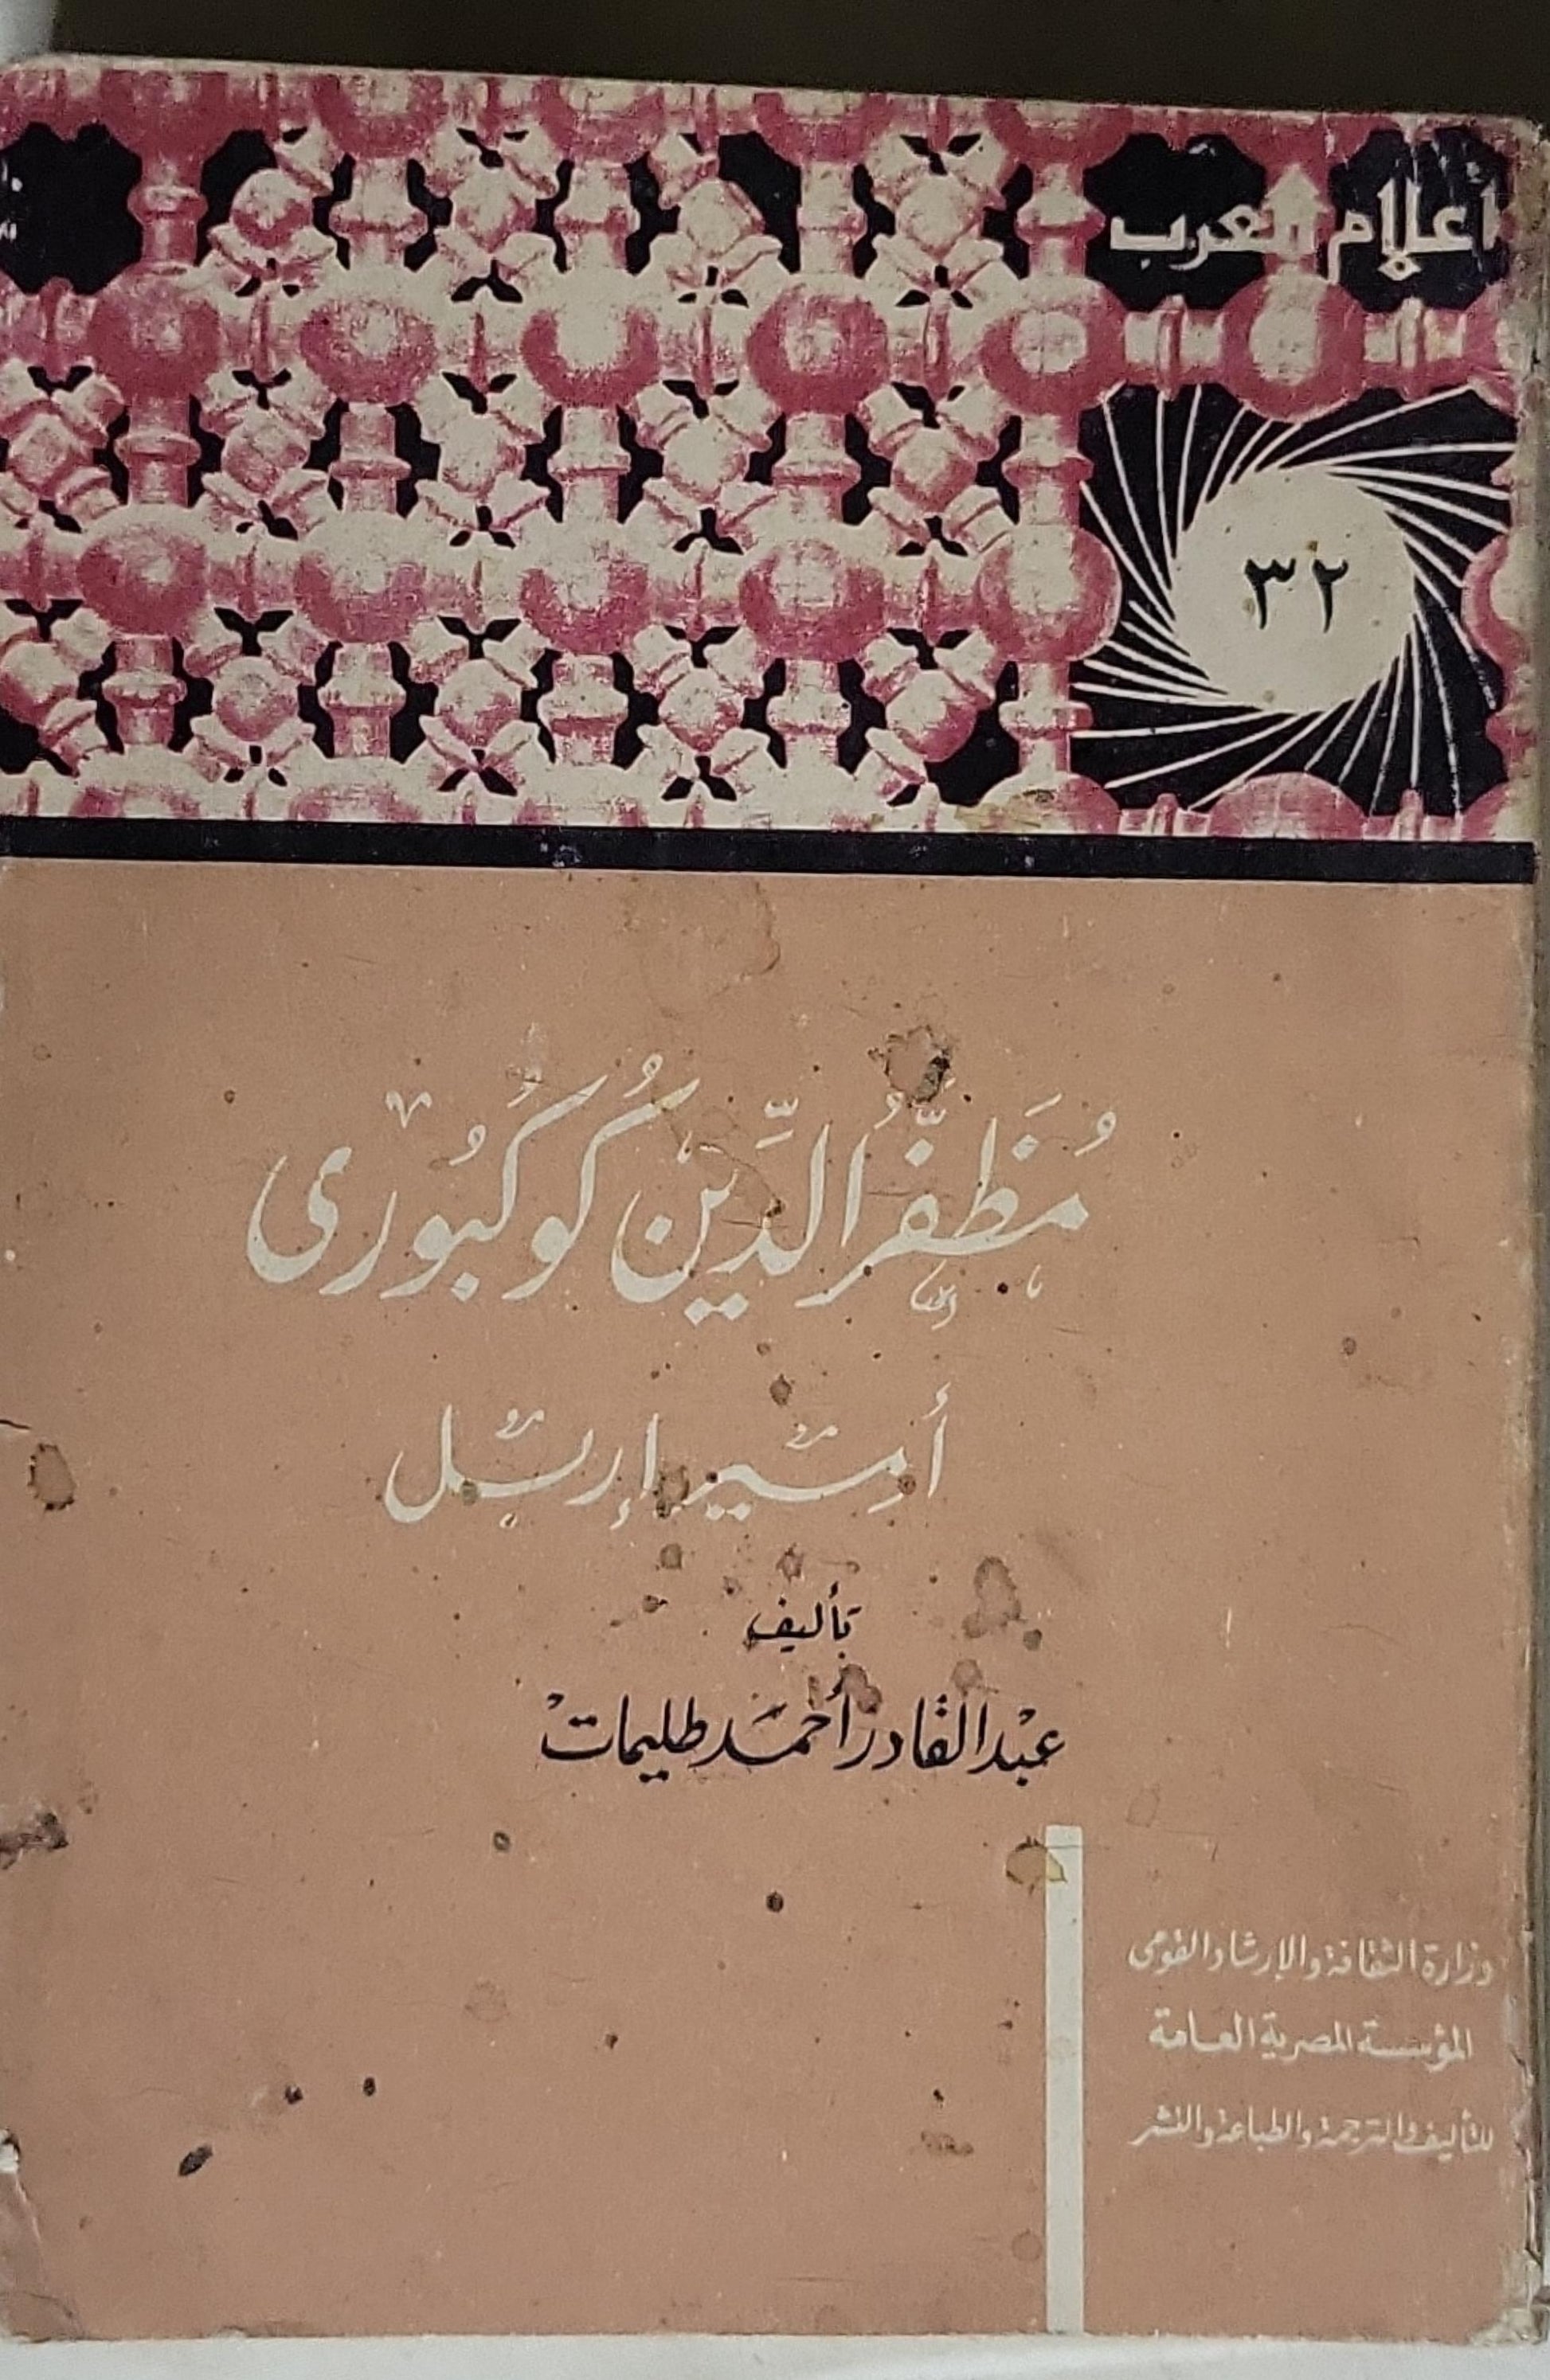 أعلام العرب
٣٢
مُظَفَّرُ الدِّين كُوكُبُورى
أمير إربل
تأليف
عبد القادر أحمد طليمات
وزارة الثقافة والإرشاد القومى
المؤسسة المصرية العامة
للتأليف والترجمة والطباعة والنشر